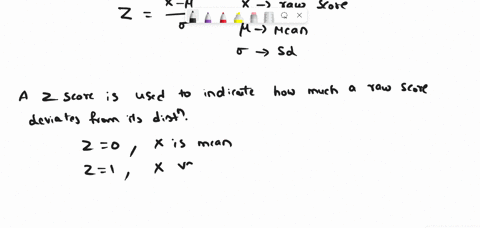 Z = x-μ / σ x → raw score
μ → Mean
σ → Sd
A Z score is used to indicate how much a raw score
deviates from its distⁿ.
Z=0, x is mean
Z=1, x